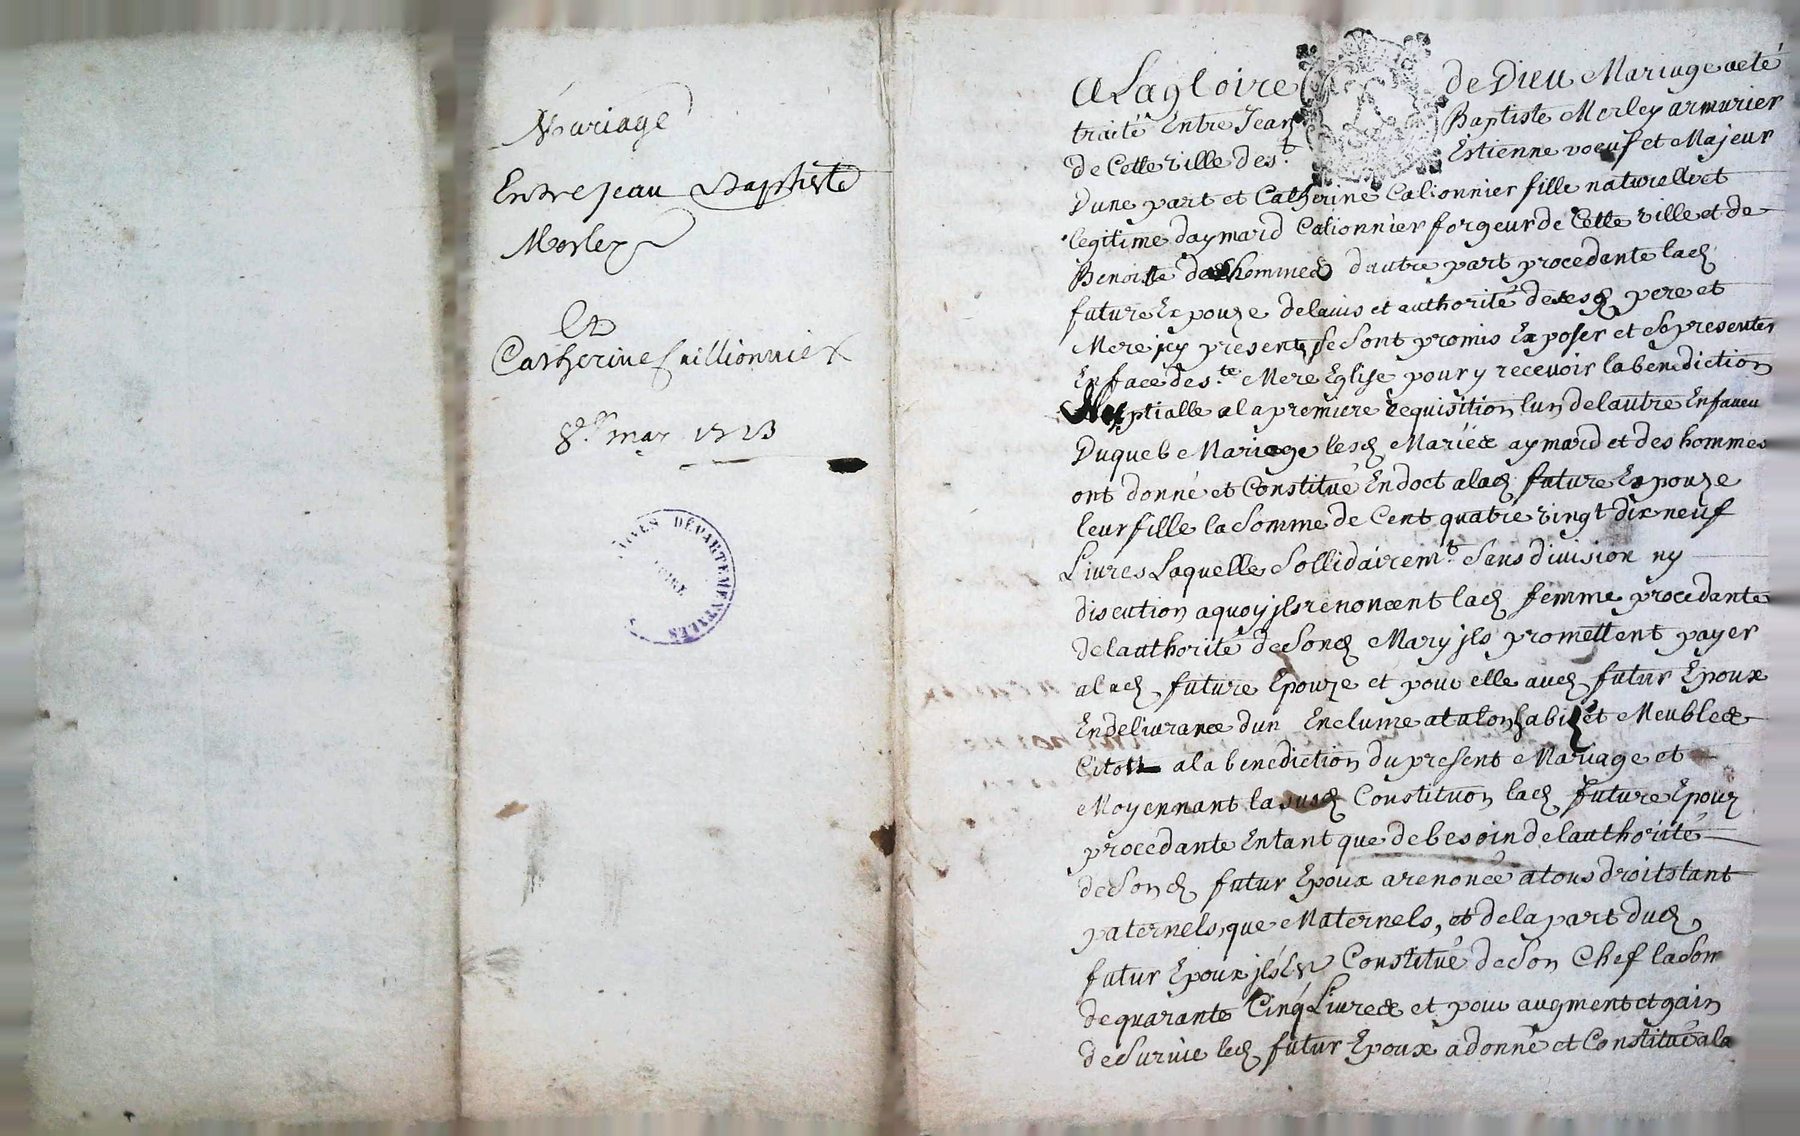 Mariage
Entre Jean Baptiste
Merley
Et
Catherine Caillionnier
8e. mar 1723
ARCHIVES DÉPARTEMENTALES
LOIRE
A La gloire de Dieu Mariage a eté
traité Entre Jean Baptiste Merley armurier
de Cette ville de st. Estienne voeuf et Majeur
Dune part et Catherine Calionnier fille naturelle et
legitime daymard Calionnier forgeur de Cette ville et de
Benoiste deshommes dautre part procedante lad
future Expouze delavis et authorité de sesd pere et
Mere jcy presents se sont promis Exposer et se presenter
En face de ste. Mere Eglise pour y recevoir la benediction
Nuptialle a la premiere requisition lun de lautre En faveu
Duquel Mariage lesd Mariés aymard et deshommes
ont donné et Constitué En doct a lad future Expouze
leur fille la Somme de Cent quatre vingt dix neuf
Livres Laquelle Sollidairemt. Sens division ny
discution a quoy jls renoncent lad femme procedante
de lauthorité de Sond Mary jls promettent payer
a lad future Epouze et pour elle aud futur Epoux
En delivrance dun Enclume atalon habits et Meubles
Citost a la benediction du present Mariage et
Moyennant la susd Constitution lad future Epouz
procedante En tant que de besoin de lauthorité
de Sond futur Epoux a renoncé a tous droits tant
paternels, que Maternels, et de la part dud,
futur Epoux jl s'Est Constitué de Son Chef la Som
de quarante Cinq Livres et pour augment et gain
de Survie led futur Epoux a donné et Constitué a la